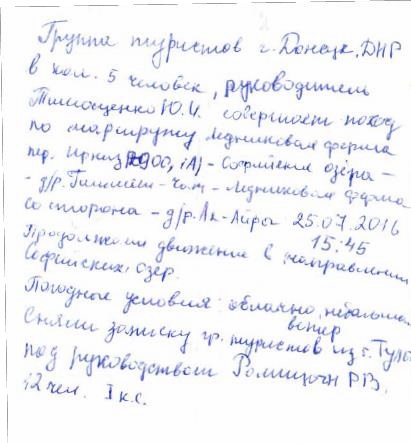 Группа туристов г. Донецк, ДНР
в кол. 5 человек, руководитель
Тимощенко Ю.И. совершает поход
по маршруту Ледниковая ферма
пер. Иркиз 2900, 1А) – Софийские озёра –
– д/р. – – Ледниковая ферма
со сторона – д/р. Ак-Айры 25.07.2016
15:45
Продолжаем движение в направлении
Софийских озер.
Погодные условия: облачно, небольшой
ветер
Сняли записку гр. туристов из г. Тулы
под руководством Р.В.
12 чел. I к.с.